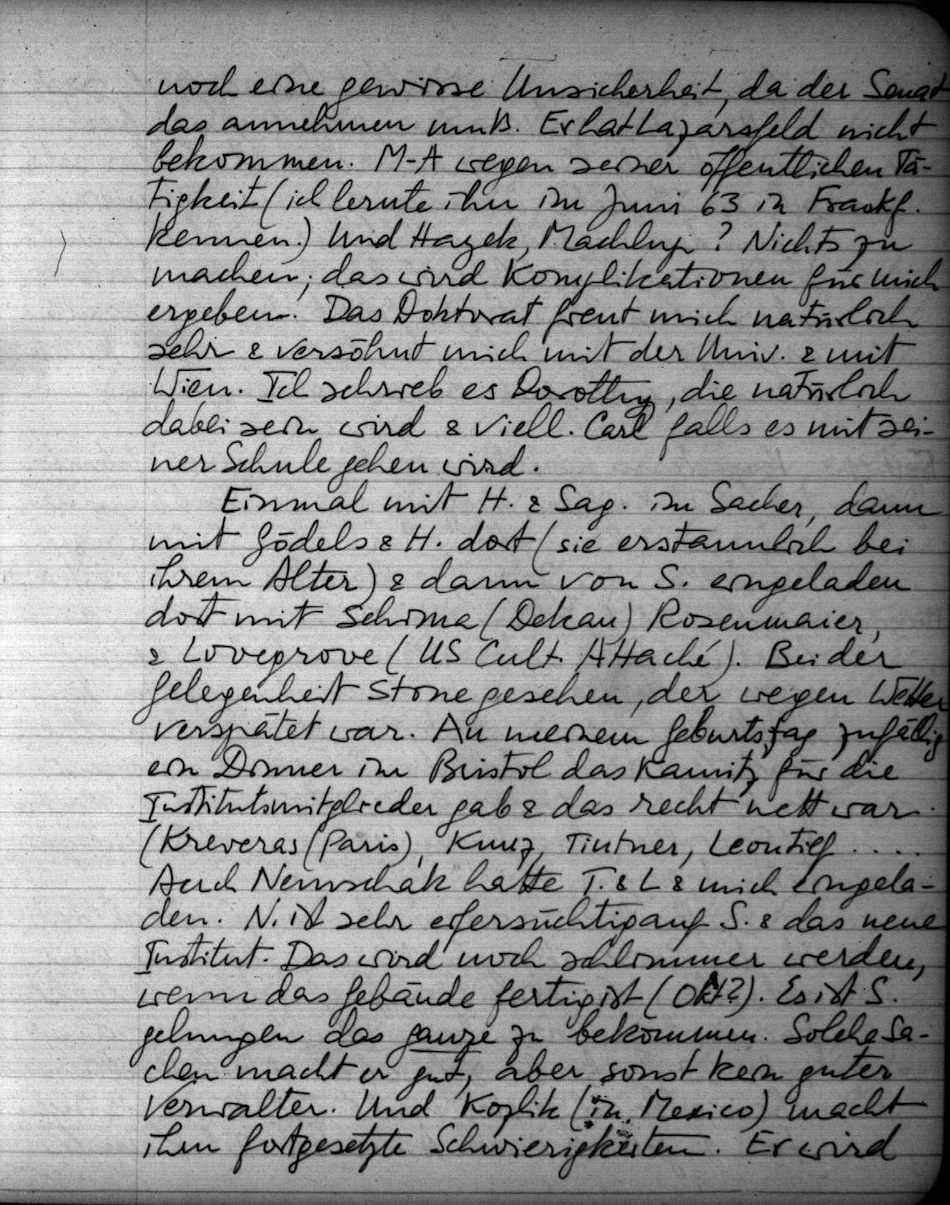 noch eine gewisse Unsicherheit, da der Senat
das annehmen muß. Er hat Lazarsfeld nicht
bekommen. M-A wegen seiner öffentlichen Tä-
tigkeit (ich lernte ihn im Juni 63 in Frankf.
kennen.) Und Hayek, Machlup? Nichts zu
machen; das wird Komplikationen für mich
ergeben. Das Doktorat freut mich natürlich
sehr & versöhnt mich mit der Univ. & mit
Wien. Ich schrieb es Dorothy, die natürlich
dabei sein wird & viell. Carl falls es mit sei-
ner Schule gehen wird.
Einmal mit H. & Sag. im Sacher, dann
mit Gödels & H. dort (sie erstaunlich bei
ihrem Alter) & dann von S. eingeladen
dort mit Schima (Dekan) Rosenmaier,
& Lovegrove (US Cult. Attaché). Bei der
Gelegenheit Stone gesehen, der wegen Wetter
verspätet war. An meinem Geburtstag zufällig
ein Dinner im Bristol das Kamitz für die
Institutsmitglieder gab & das recht nett war.
(Kreveras (Paris), Kunz, Tintner, Leontief ....
Auch Nemschak hatte T. & L & mich eingela-
den. N. ist sehr eifersüchtig auf S. & das neue
Institut. Das wird noch schlimmer werden,
wenn das Gebäude fertig ist (Okt?). Es ist S.
gelungen das ganze zu bekommen. Solche Sa-
chen macht er gut, aber sonst kein guter
Verwalter. Und Kozlik (in Mexico) macht
ihm fortgesetzte Schwierigkeiten. Er wird